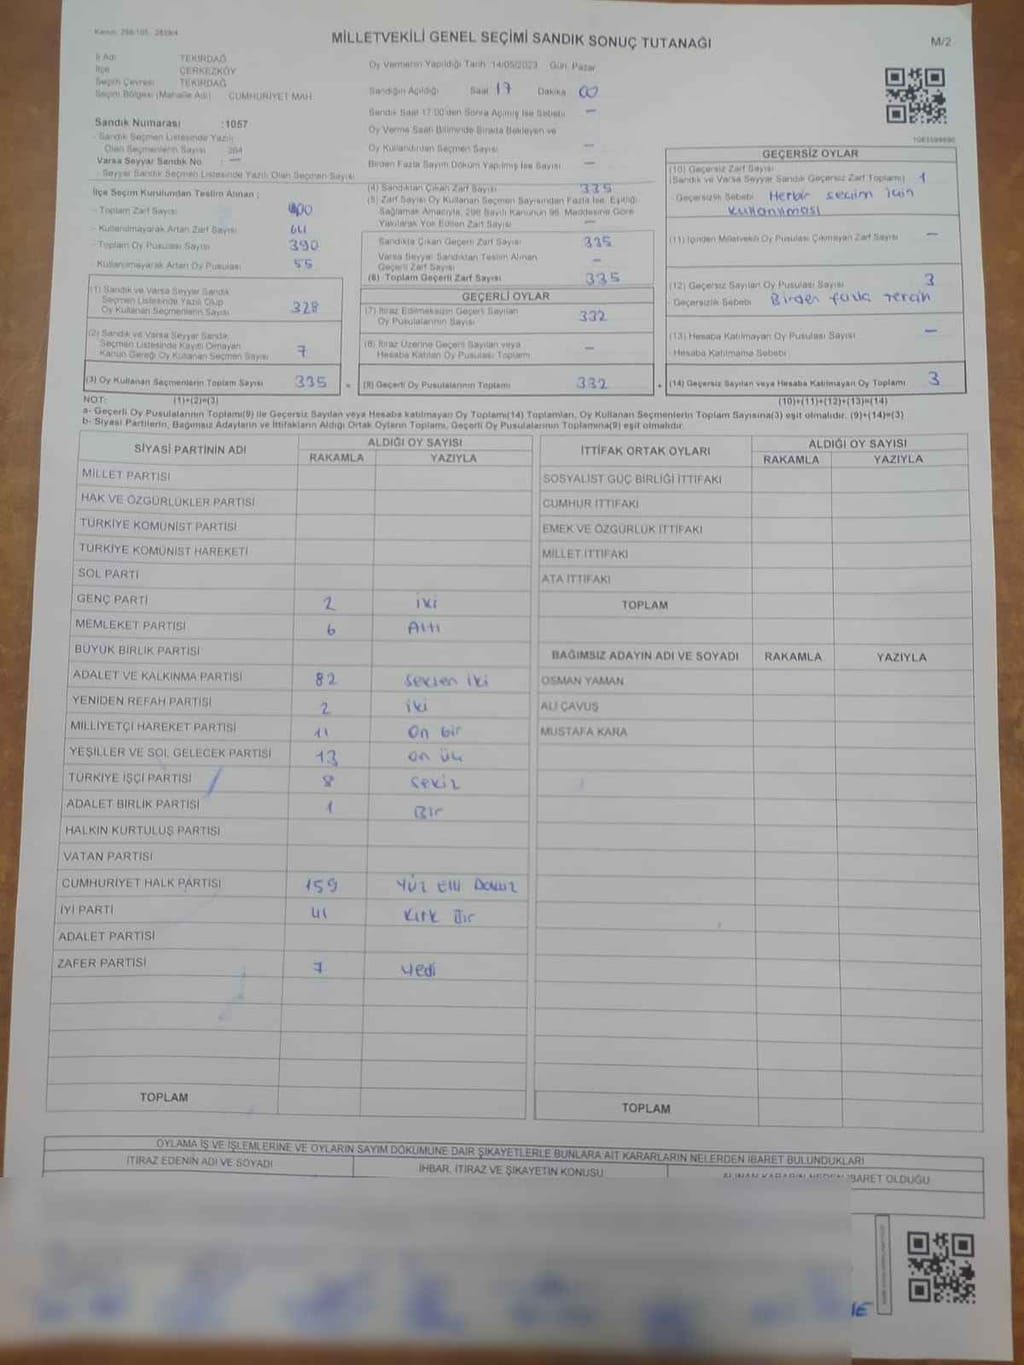 Kanun: 298/105 - 2839/4
MİLLETVEKİLİ GENEL SEÇİMİ SANDIK SONUÇ TUTANAĞI
M/2
İl Adı TEKİRDAĞ
İlçe ÇERKEZKÖY
Seçim Çevresi TEKİRDAĞ
Seçim Bölgesi (Mahalle Adı) CUMHURİYET MAH.
Sandık Numarası :1057
- Sandık Seçmen Listesinde Yazılı
Olan Seçmenlerin Sayısı 384
Varsa Seyyar Sandık No : —
- Seyyar Sandık Seçmen Listesinde Yazılı Olan Seçmen Sayısı
İlçe Seçim Kurulundan Teslim Alınan :
- Toplam Zarf Sayısı 400
- Kullanılmayarak Artan Zarf Sayısı 64
- Toplam Oy Pusulası Sayısı 390
- Kullanılmayarak Artan Oy Pusulası 55
(1) Sandık ve Varsa Seyyar Sandık
Seçmen Listesinde Yazılı Olup
Oy Kullanan Seçmenlerin Sayısı 328
(2) Sandık ve Varsa Seyyar Sandık
Seçmen Listesinde Kayıtlı Olmayan
Kanun Gereği Oy Kullanan Seçmen Sayısı 7
(3) Oy Kullanan Seçmenlerin Toplam Sayısı 335
Oy Vermenin Yapıldığı Tarih :14/05/2023 Gün: Pazar
Sandığın Açıldığı Saat 17 Dakika 00
Sandık Saat 17:00'den Sonra Açılmış İse Sebebi —
Oy Verme Saati Bitiminde Sırada Bekleyen ve
Oy Kullandırılan Seçmen Sayısı —
Birden Fazla Sayım Döküm Yapılmış İse Sayısı —
(4) Sandıktan Çıkan Zarf Sayısı 335
(5) Zarf Sayısı Oy Kullanan Seçmen Sayısından Fazla İse, Eşitliği
Sağlamak Amacıyla, 298 Sayılı Kanunun 98. Maddesine Göre
Yakılarak Yok Edilen Zarf Sayısı —
Sandıkta Çıkan Geçerli Zarf Sayısı 335
Varsa Seyyar Sandıktan Teslim Alınan
Geçerli Zarf Sayısı —
(6) Toplam Geçerli Zarf Sayısı 335
GEÇERLİ OYLAR
(7) İtiraz Edilmeksizin Geçerli Sayılan
Oy Pusulalarının Sayısı 332
(8) İtiraz Üzerine Geçerli Sayılan veya
Hesaba Katılan Oy Pusulası Toplamı —
(9) Geçerli Oy Pusulalarının Toplamı 332
GEÇERSİZ OYLAR
(10) Geçersiz Zarf Sayısı
(Sandık ve Varsa Seyyar Sandık Geçersiz Zarf Toplamı) 1
- Geçersizlik Sebebi Herbir secim icin
kullanılması
(11) İçinden Milletvekili Oy Pusulası Çıkmayan Zarf Sayısı —
(12) Geçersiz Sayılan Oy Pusulası Sayısı 3
- Geçersizlik Sebebi Birden fazla Tercih
(13) Hesaba Katılmayan Oy Pusulası Sayısı —
- Hesaba Katılmama Sebebi
(14) Geçersiz Sayılan veya Hesaba Katılmayan Oy Toplamı 3
NOT: (1)+(2)=(3) (10)+(11)+(12)+(13)=(14)
a- Geçerli Oy Pusulalarının Toplamı(9) ile Geçersiz Sayılan veya Hesaba katılmayan Oy Toplamı(14) Toplamları, Oy Kullanan Seçmenlerin Toplam Sayısına(3) eşit olmalıdır. (9)+(14)=(3)
b- Siyasi Partilerin, Bağımsız Adayların ve İttifakların Aldığı Ortak Oyların Toplamı, Geçerli Oy Pusulalarının Toplamına(9) eşit olmalıdır.
SİYASİ PARTİNİN ADI ALDIĞI OY SAYISI
RAKAMLA YAZIYLA
MİLLET PARTİSİ
HAK VE ÖZGÜRLÜKLER PARTİSİ
TÜRKİYE KOMÜNİST PARTİSİ
TÜRKİYE KOMÜNİST HAREKETİ
SOL PARTİ
GENÇ PARTİ 2 iki
MEMLEKET PARTİSİ 6 Altı
BÜYÜK BİRLİK PARTİSİ
ADALET VE KALKINMA PARTİSİ 82 seksen iki
YENİDEN REFAH PARTİSİ 2 iki
MİLLİYETÇİ HAREKET PARTİSİ 11 On bir
YEŞİLLER VE SOL GELECEK PARTİSİ 13 on üç
TÜRKİYE İŞÇİ PARTİSİ 8 sekiz
ADALET BİRLİK PARTİSİ 1 Bir
HALKIN KURTULUŞ PARTİSİ
VATAN PARTİSİ
CUMHURİYET HALK PARTİSİ 159 Yüz Elli Dokuz
İYİ PARTİ 41 Kırk Bir
ADALET PARTİSİ
ZAFER PARTİSİ 7 Yedi
TOPLAM
İTTİFAK ORTAK OYLARI ALDIĞI OY SAYISI
RAKAMLA YAZIYLA
SOSYALİST GÜÇ BİRLİĞİ İTTİFAKI
CUMHUR İTTİFAKI
EMEK VE ÖZGÜRLÜK İTTİFAKI
MİLLET İTTİFAKI
ATA İTTİFAKI
TOPLAM
BAĞIMSIZ ADAYIN ADI VE SOYADI RAKAMLA YAZIYLA
OSMAN YAMAN
ALİ ÇAVUŞ
MUSTAFA KARA
TOPLAM
OYLAMA İŞ VE İŞLEMLERİNE VE OYLARIN SAYIM DÖKÜMÜNE DAİR ŞİKAYETLERLE BUNLARA AİT KARARLARIN NELERDEN İBARET BULUNDUKLARI
İTİRAZ EDENİN ADI VE SOYADI İHBAR, İTİRAZ VE ŞİKAYETİN KONUSU ALINAN KARARIN NEDEN İBARET OLDUĞU